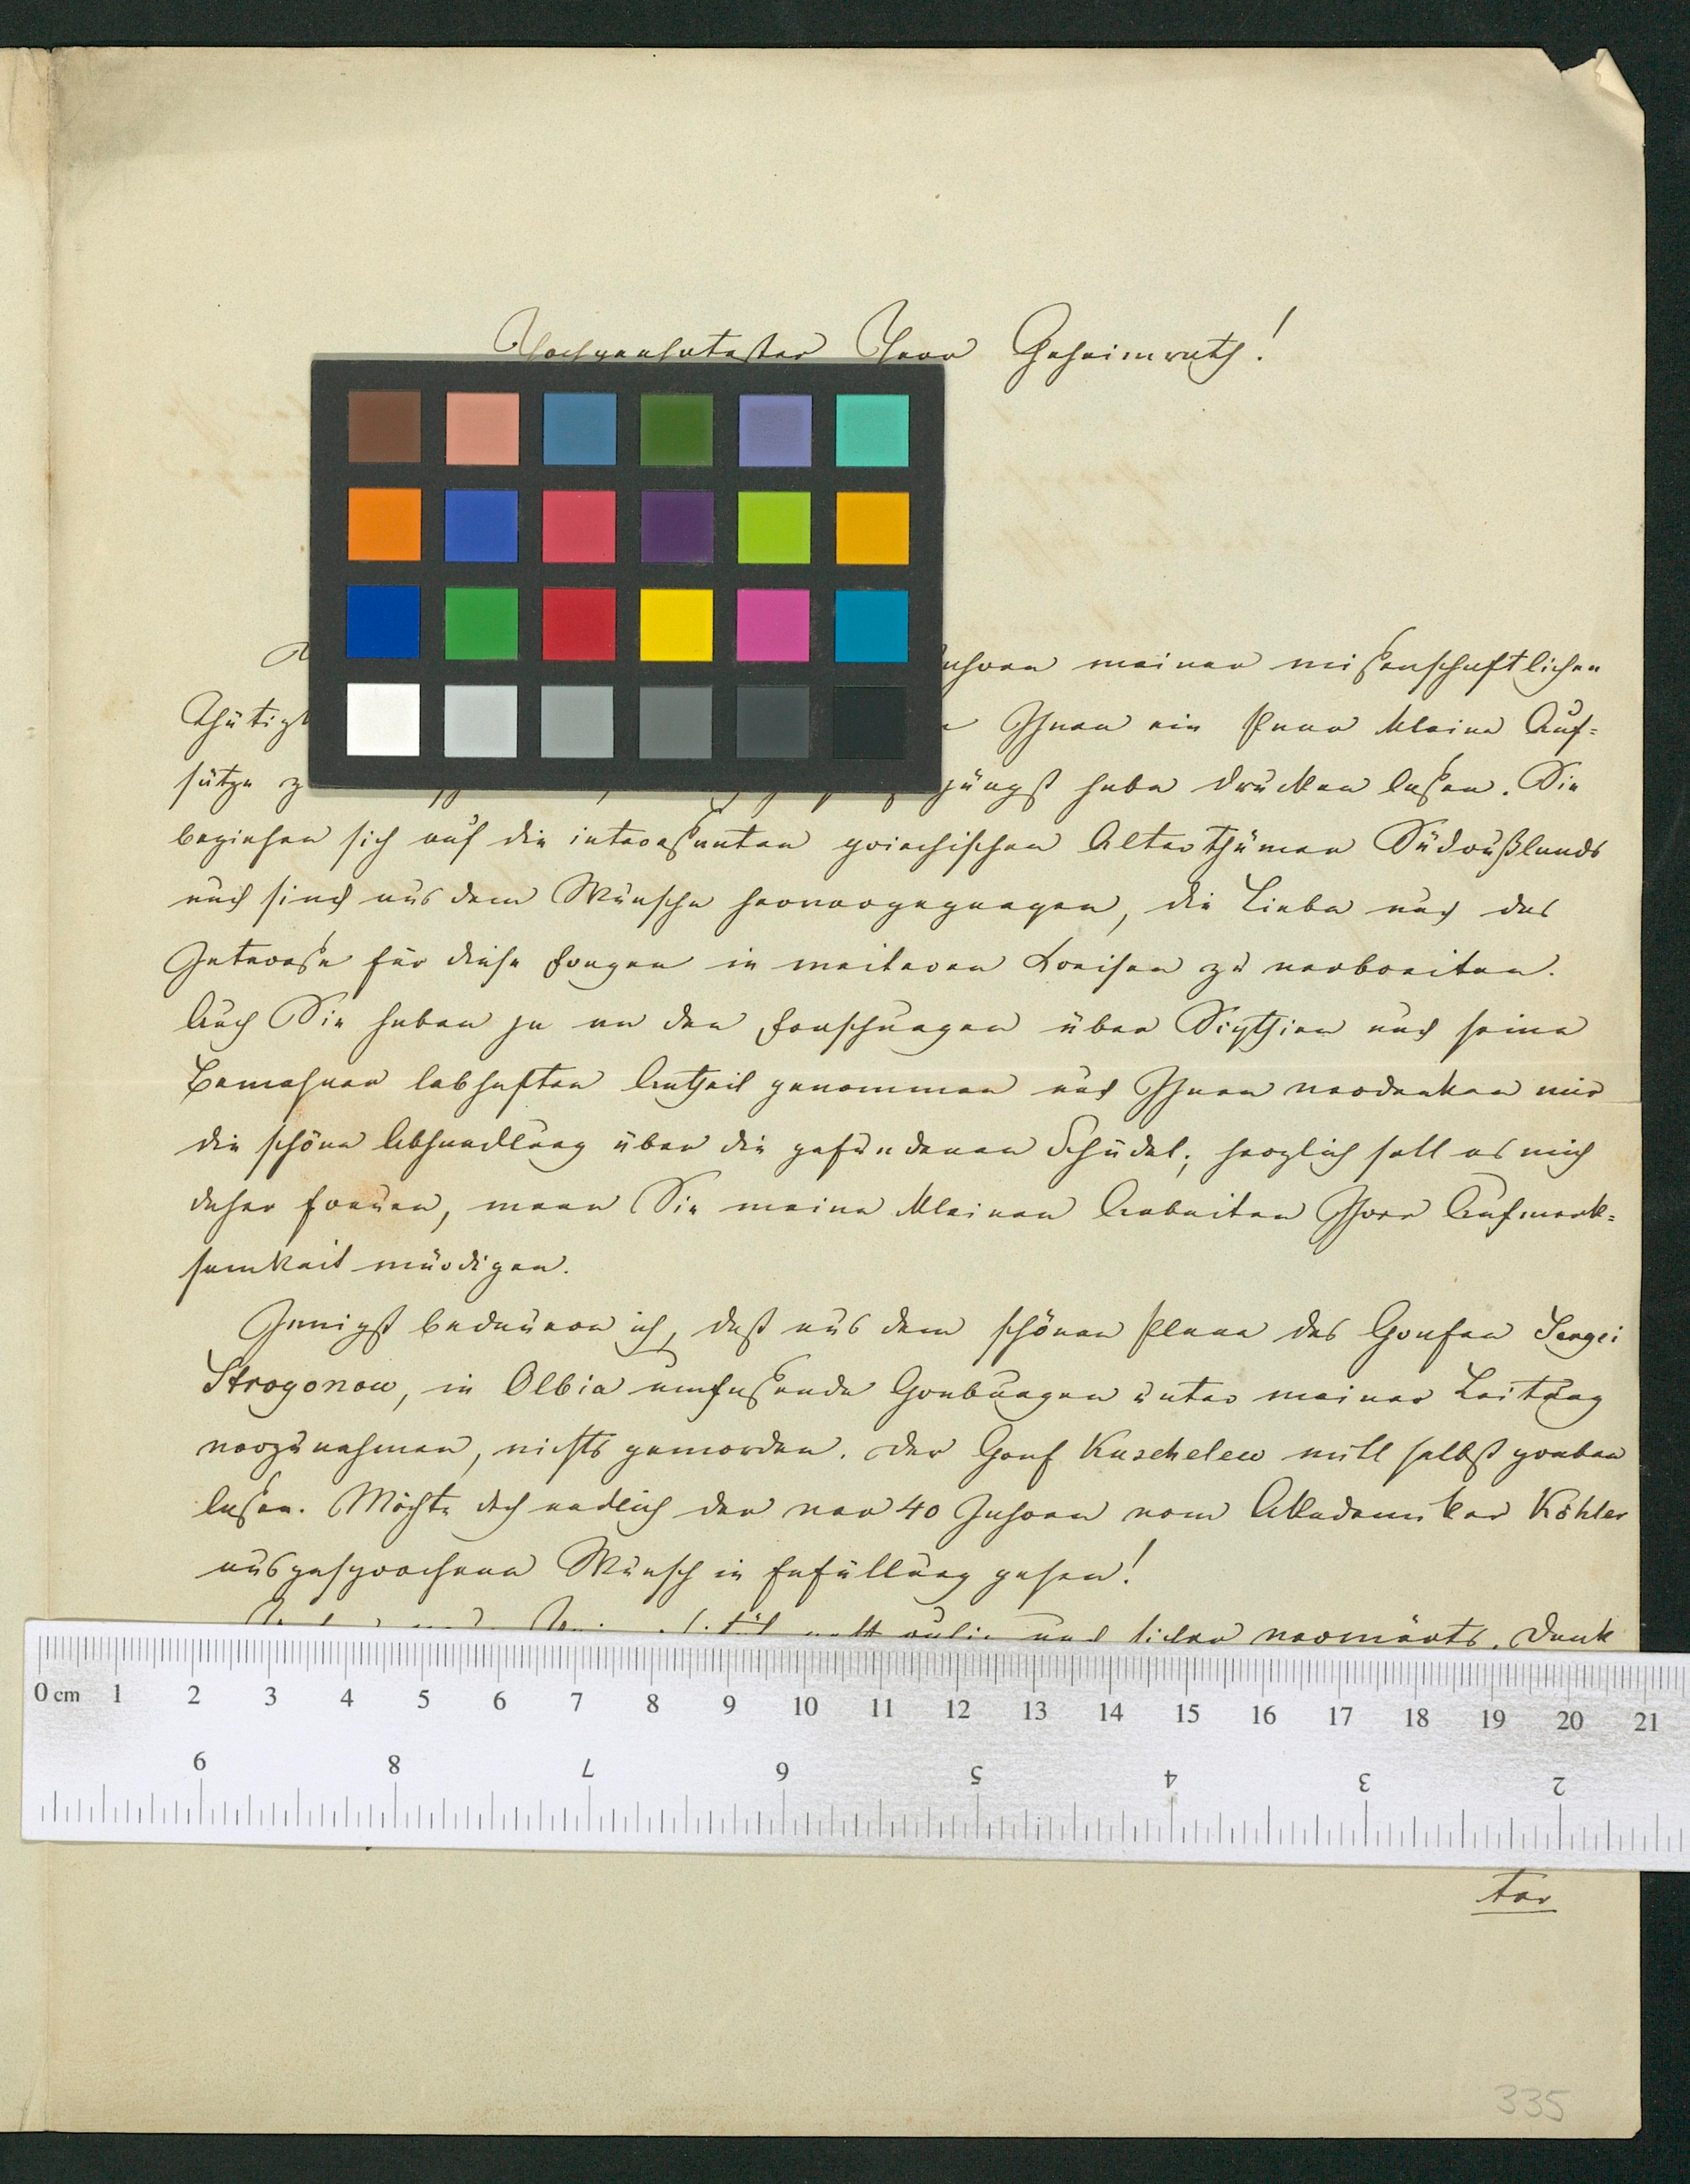 Hochgeehrtester Herr Geheimrath!
Jahren meiner wißenschaftlichen
Thätigk Ihnen ein Paar kleine Auf-
sätze z jüngst habe drucken laßen. Sie
beziehen sich auf die interessanten griechischen Alterthümer Südrußlands
und sind aus dem Wunsche hervorgegangen, die Liebe und das
Interesse für diese Fragen in weiteren Kreisen zu verbreiten.
Auch Sie haben ja an den Forschungen über Scythien und seine
Bewohner lebhaften Antheil genommen und Ihnen verdanken wir
die schöne Abhandlung über die gefundenen Schädel; herzlich soll es mich
daher freuen, wenn Sie meine kleinen Arbeiten Ihrer Aufmerk-
samkeit würdigen.
Innigst bedauern ich, daß aus dem schönen Plane des Grafen Sergei
Strogonow, in Olbia umfaßende Grabungen unter meiner Leitung
vorzunehmen, nichts geworden. Der Graf Kuschelew will selbst graben
laßen. Möchte doch endlich der vor 40 Jahren vom Akademiker Köhler
ausgesprochene Wunsch in Erfüllung gehen!
ruhig und sicher vorwärts. Dank
ter
335
0 cm 1 2 3 4 5 6 7 8 9 10 11 12 13 14 15 16 17 18 19 20 21
9 8 7 6 5 4 3 2